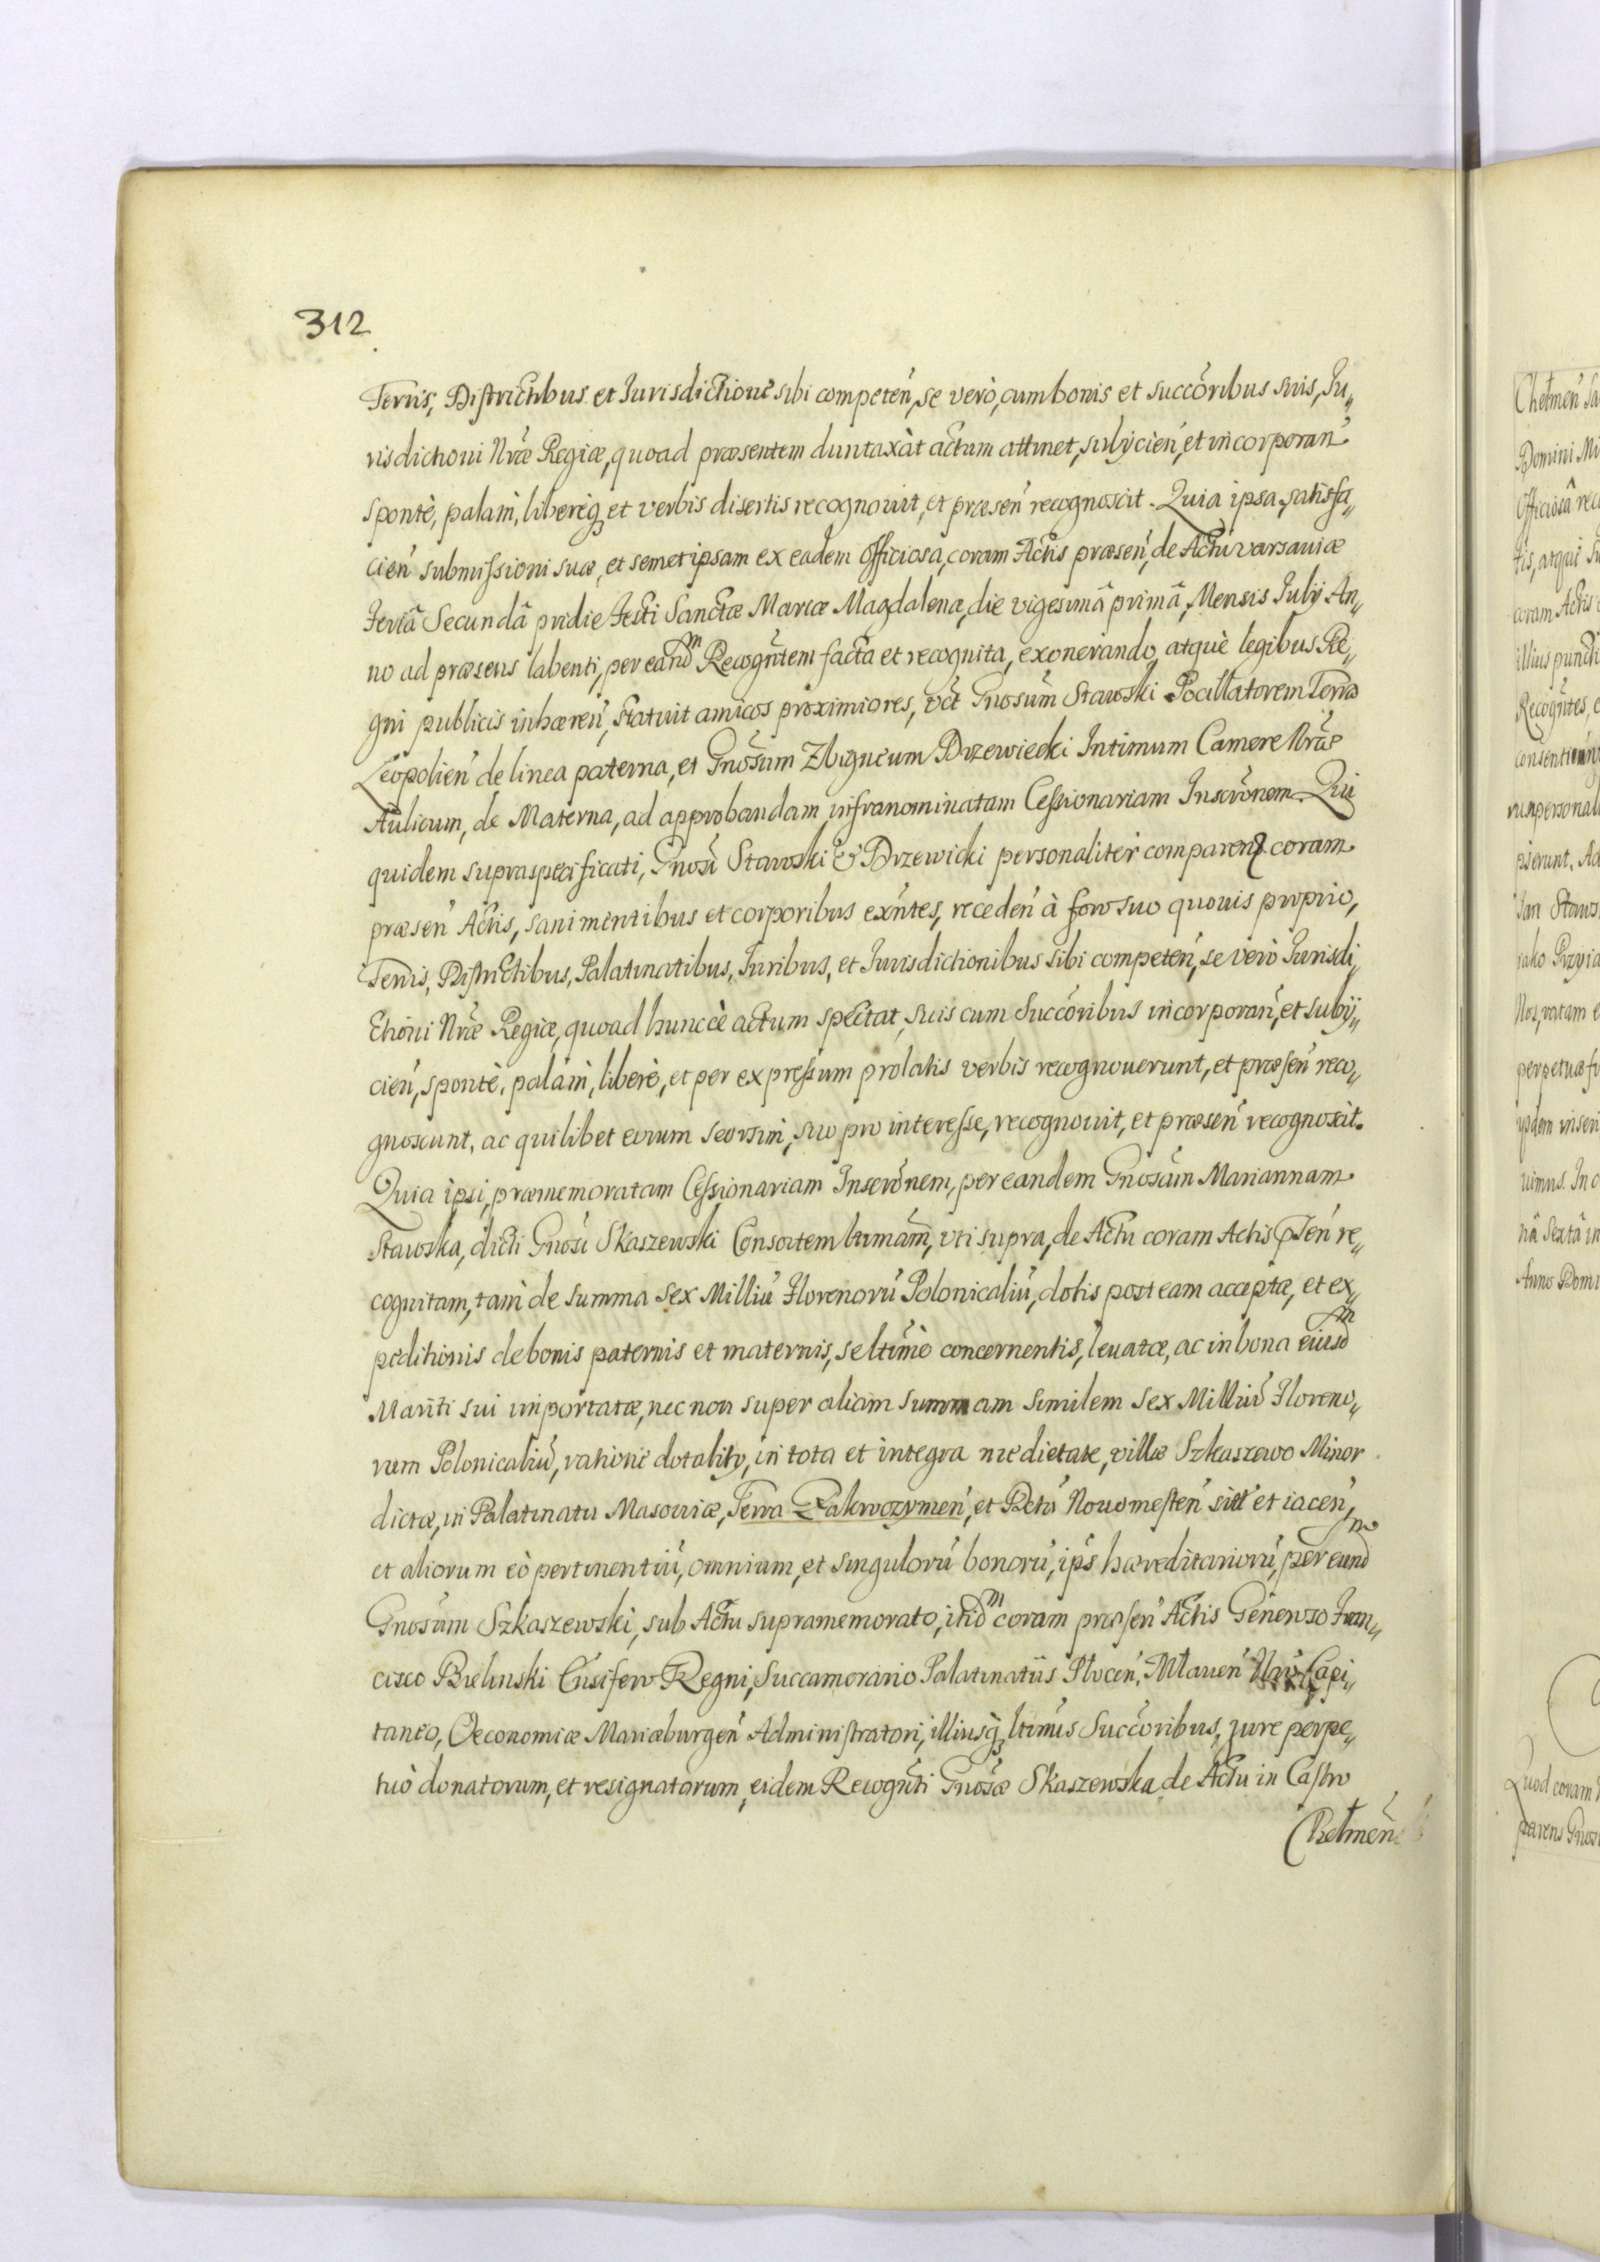 312
Terris, Districtibus et Jurisdictione sibi competeń, se verò, cum bonis et succõribus suis, Ju„
risdictioni Nr̃æ Regiæ, quoad præsentem duntaxàt actum attinet, subijcień, et incorporań
spontè, palàm, liberèq3 et verbis disertis recognovit, et præseń recognoscit. Quia ipsa, satisfa„
cień submissioni suæ, et semetipsam ex eadem Officiosa, coram Actis præseń, de Actu varsaviæ
Feriâ Secundâ pridie Festi Sanctæ Mariæ Magdalenæ, die vigesimâ primâ, Mensis Julij An„
no ad præsens labenti, per eand̃m Recogñtem facta et recognita, exonerando, atquè legibus Re„
gni publicis inhæreń, statuit amicos proximiores, vct Gnosũm Stawski Pocillatorem Terræ
Leopolień de linea paterna, et Gnosũm Zbigneum Drzewiecki Intimum Camere Nr̃æ
Aulicum, de Materna, ad approbandam infranominatam Cessionariam Inscrõnem. Qui
quidem supraspecificati, Gnosi Stawski & Drzewicki personalitèr comparen coram
præseń Actis, sani mentibus et corporibus exñtes, recedeń à foro suo quovis proprio,
Terris, Districtibus, Palatinatibus, Juribus, et Jurisdictionibus sibi competeń, se verò Jurisdi„
ctioni Nr̃æ Regiæ, quoad huncce actum spectat, suis cum Succõribus incorporań, et subij„
cień, spontè, palàm, liberè, et per expressum prolatis verbis recognouerunt, et præseń reco„
gnoscunt, ac quilibet eorum seorsim, suo pro interesse, recognovit, et præseń recognoscit.
Quia ipsi, præmemoratam Cessionariam Inscrõnem, per eandem Gnosãm Mariannam
Stawska, dicti Gnosi Skaszewski Consortem ltimãm, vti supra, de Actu coram Actis pseń re„
cognitam, tam de summa sex Milliũ Florenorũ Polonicaliũ, dotis post eam acceptæ, et ex„
peditionis de bonis paternis et maternis, se ltimè concernentis, leuatæ, ac in bona eiusd̃m
Mariti sui importatæ, nec non super aliam summam similem sex Milliũ Floreno„
rum Polonicaliũ, ratione dotality, in tota et integra medietate, villæ Szkaszewo Minor
dictæ, in Palatinatu Masoviæ, Terra Zakroczymeń, et Dctũ Nouomesteń sitt et iaceń,
et aliorum eò pertinentiũ, omnium, et singulorũ bonorũ, ips hæreditariorũ, per eund̃m
Gnosũm Szkaszewski, sub Actu supramemorato, itid̃m coram præseń Actis Generoso Fran„
cisco Bielinski Ensifero Regni, Succamerario Palatinatûs Płoceń, Mławeń Capi„
taneo, Oeconomiæ Mariæburgeń Administratori, illiusq3 ltimis Succõribus, jure perpe„
tuò donatorum, et resignatorum, eidem Recogñti Gnosæ Skaszewska de Actu in Castro
Chełmeń
Chełmeń
Domini
Officiosâ
tis, atque
coram Actis
illius puncti
Recogñtes,
personal
piserunt.
Jan Staws
iako Przyia
Nos, ratam
perpetuæ
ijsdem
uimus. In
nâ Sextâ in
Anno Domi
Quod coram
parens Gnos